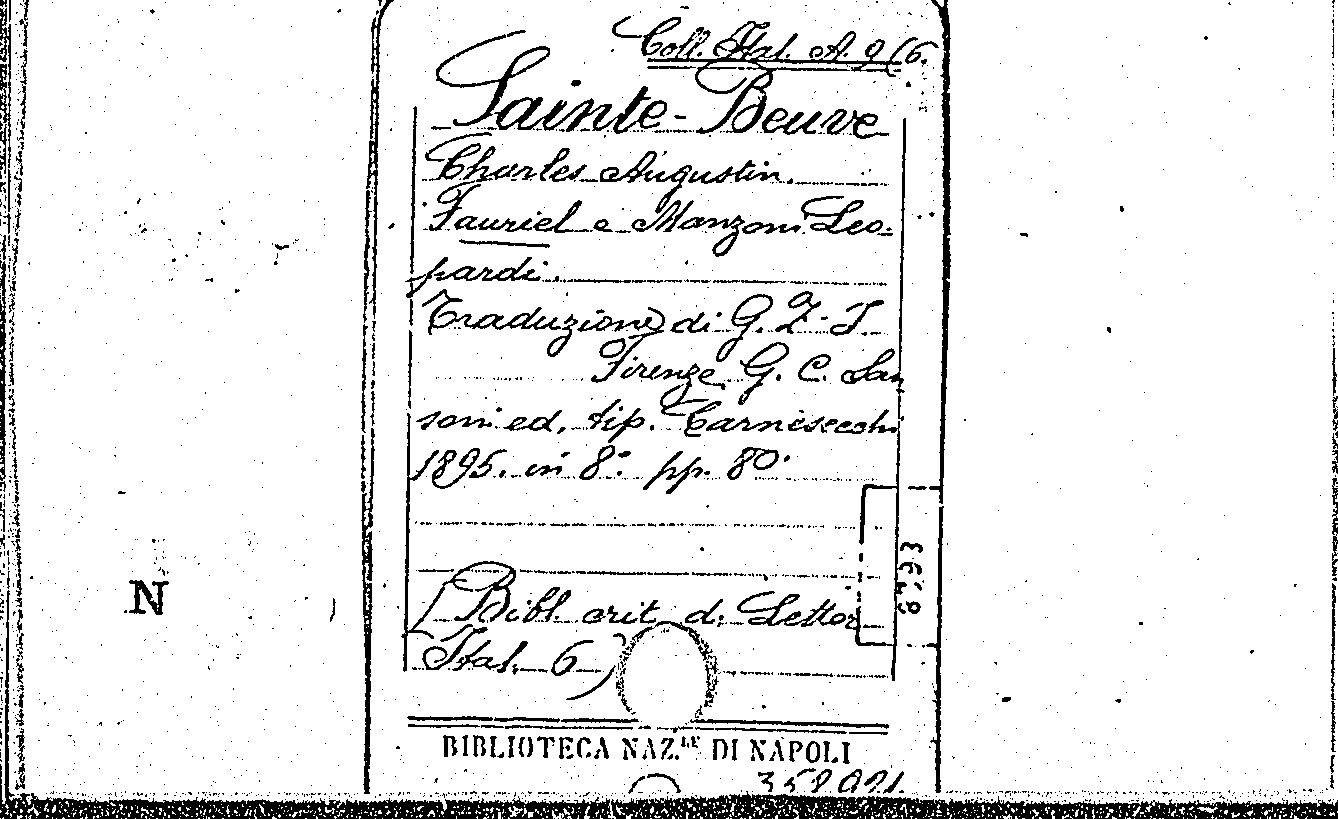 Coll. Ital. A. 9 (6.
Sainte-Beuve
Charles Augustin.
Fauriel e Manzoni Leo=
pardi.
Traduzione di G. Z-J.
Firenze G. C. San
soni ed. tip. Carnesecchi
1895. in 8.° pp. 80.
(Bibl. crit. d. Letter
Ital. 6)
N
BIBLIOTECA NAZ.LE DI NAPOLI